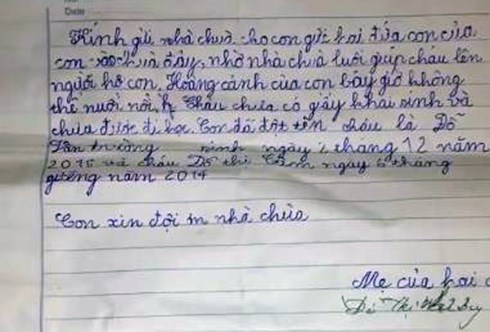 Date
Kính gửi nhà chùa cho con gửi hai đứa con của
con vào chùa đây, nhờ nhà chùa luôi giúp cháu lên
người hộ con. Hoàng cảnh của con bây giờ không
thể nuôi nổi. cháu chưa có gấy khai sinh và
chưa được đi học. Con đã đặt tên cháu là Đỗ
Văn trường sinh ngày tháng 12 năm
2015 và cháu Đỗ thị Tâm ngày 6 tháng
giêng năm 2014
Con xin đội ơn nhà chùa
Mẹ của hai
Đỗ Thị